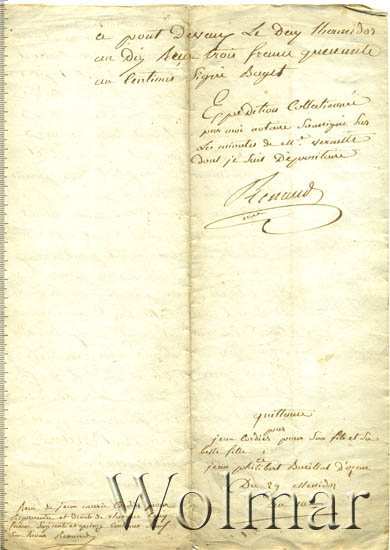 à pont Devaux Le deux thermidor
an Dix Reçu trois francs quarante
un Centimes Signé Buget
Expédition Collationnée
par moi notaire Soussigné Sur
Les minutes de Mr.
dont je Suis Dépositaire
Renaud
quittance
pour
jean Cordier pour Son fils et Sa
belle fille
à
jean philibert
Du 29 Messidor
an 10
Reçu de jean Cordier pour
et droits de
francs Soixante et quinze Centimes
Renaud
Wolmar